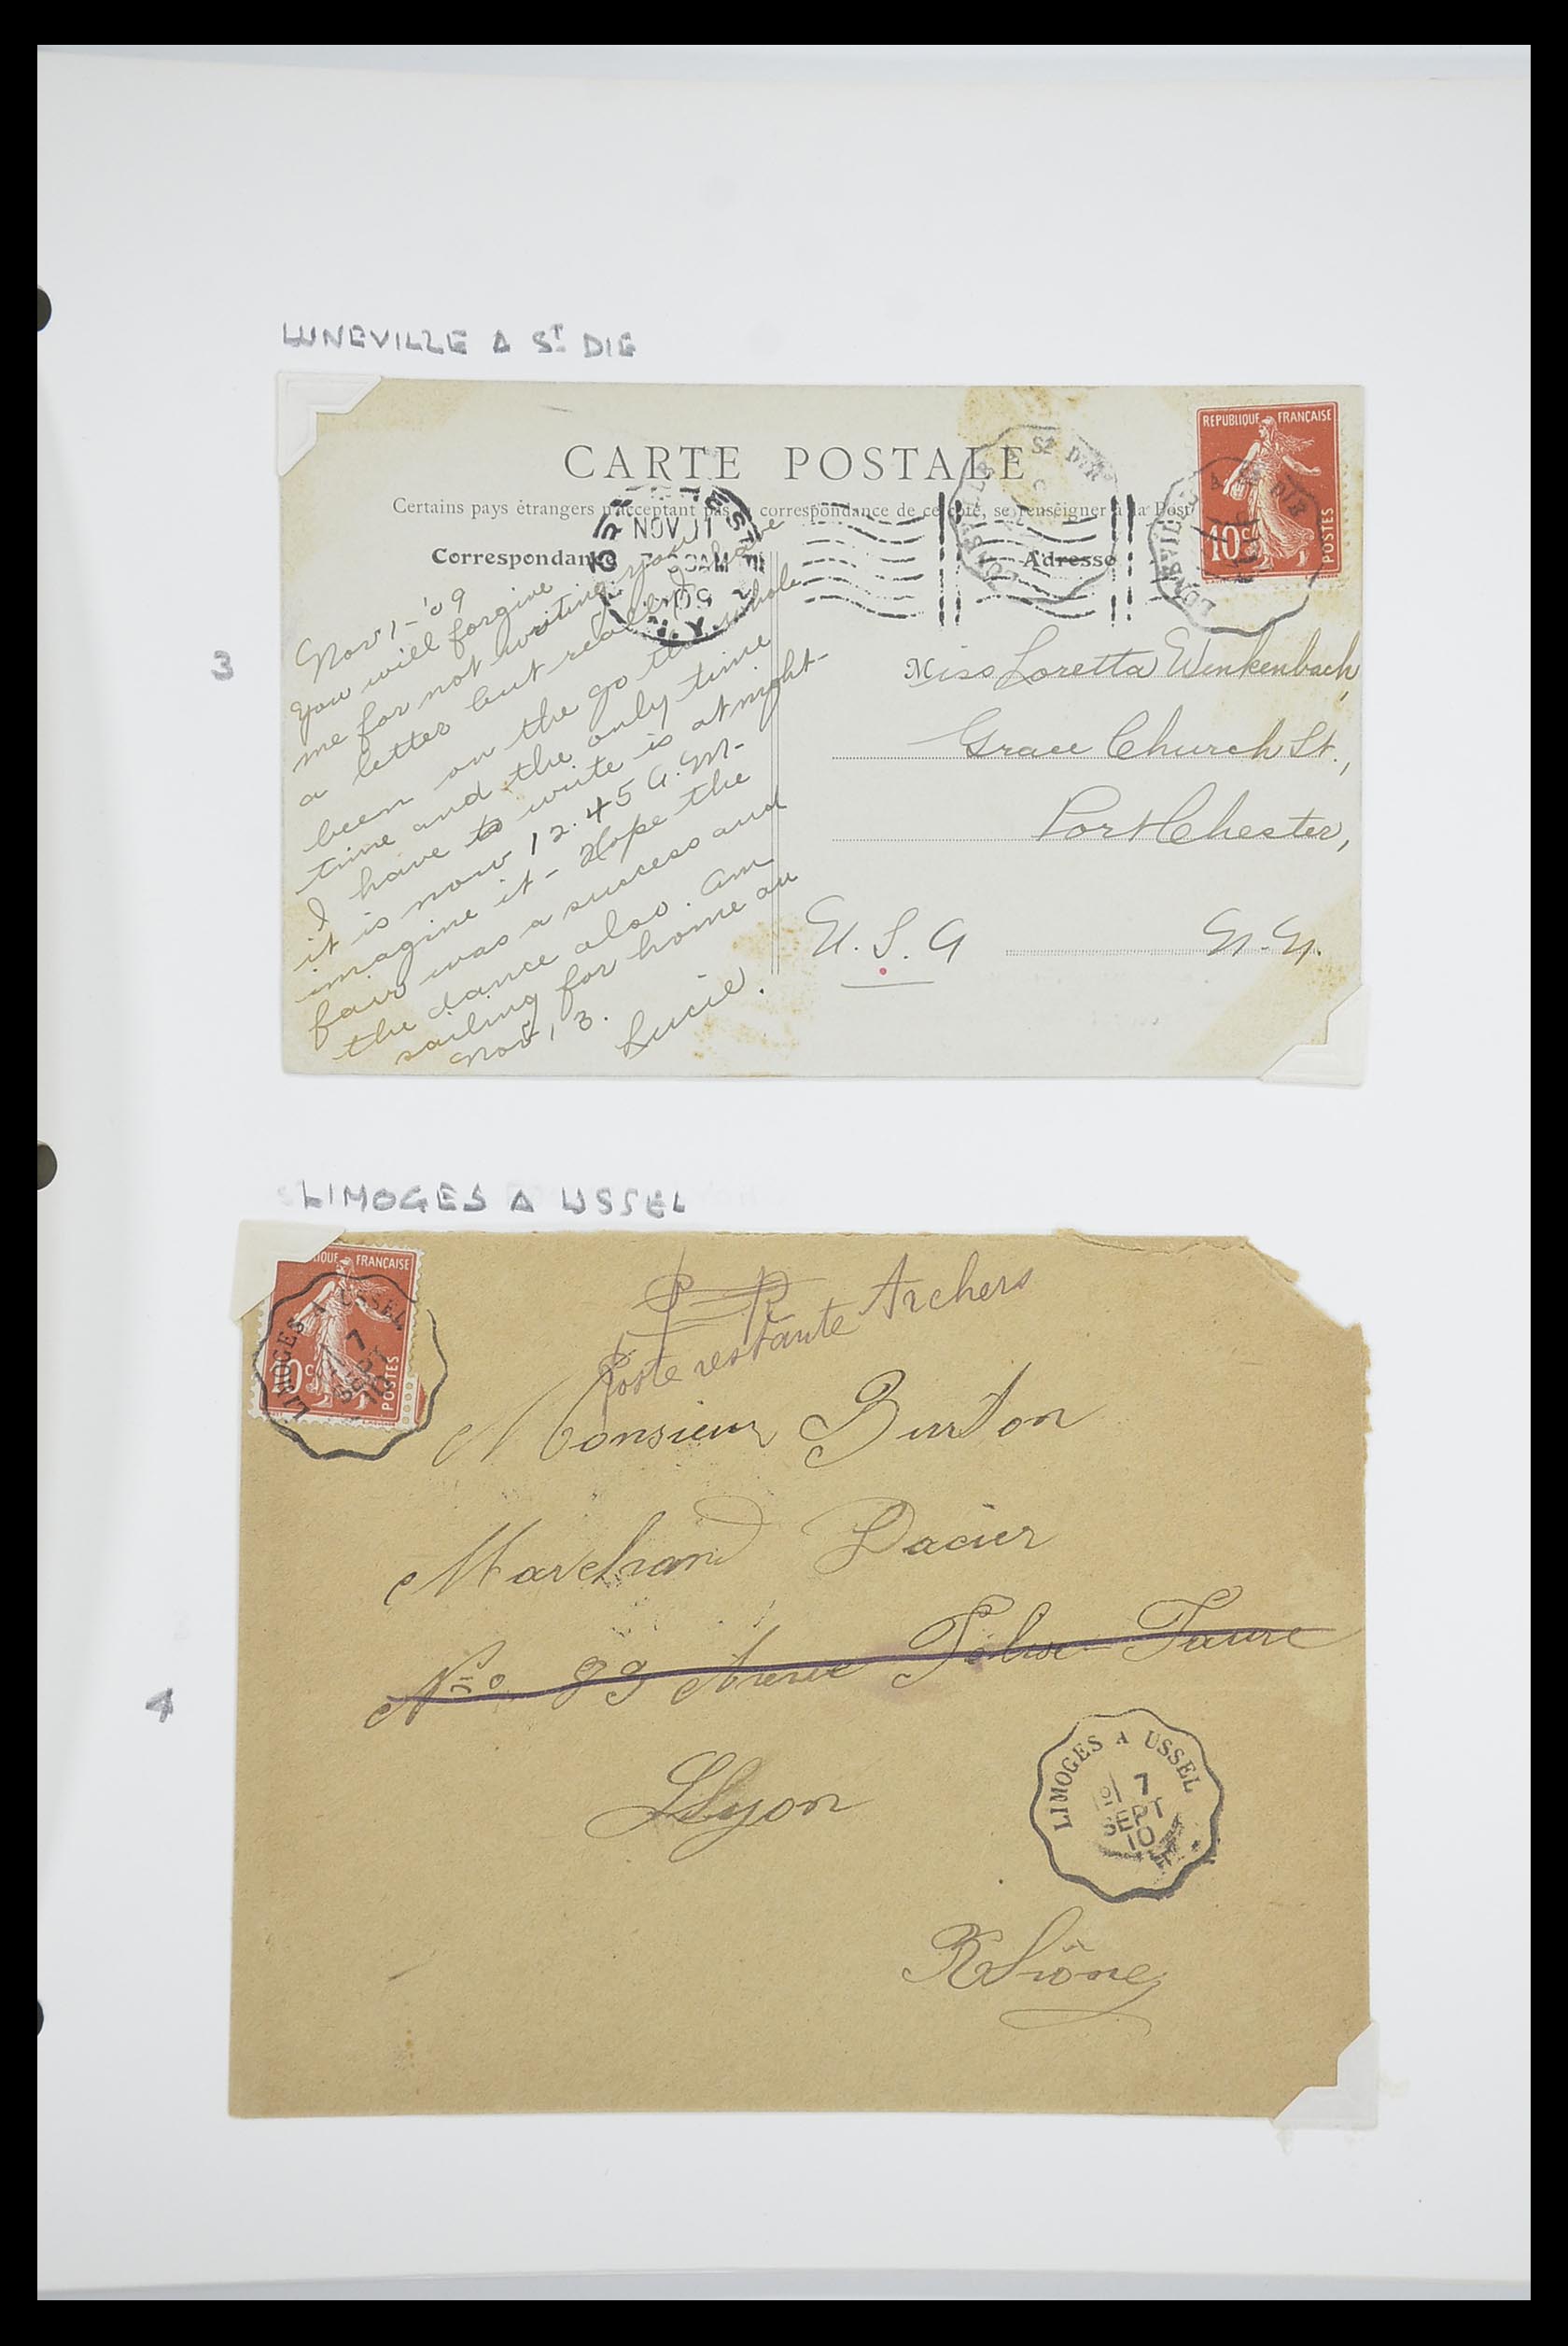 LUNEVILLE A ST DIE
CARTE POSTALE
Certains pays étrangers n'acceptant pas la correspondance de ce côté, se renseigner à la Poste
Correspondance
Adresse
REPUBLIQUE FRANÇAISE
10c
POSTES
LUNEVILLE A ST DIE
LUNEVILLE A ST DIE
NOV 11
AM
N.Y.
3
Nov 1-'09
You will forgive
me for not writing you
a letter but really I have
been on the go the whole
time and the only time
I have to write is at night-
it is now 12.45 A.M-
imagine it - Hope the
fair was a success and
the dance also. Am
sailing for home on
Nov, 3.
Lucie.
Miss Loretta Winkenbach,
Grace Church St.,
Port Chester,
U.S.A N.Y.
LIMOGES A USSEL
FRANÇAISE
10c
POSTES
LIMOGES A USSEL
7
SEPT
10
Poste restante Archers
Monsieur Burton
Marchand Dacier
No 89 Avenue Félixe Faure
LLyon
4
LIMOGES A USSEL
7
SEPT
10
Rhône